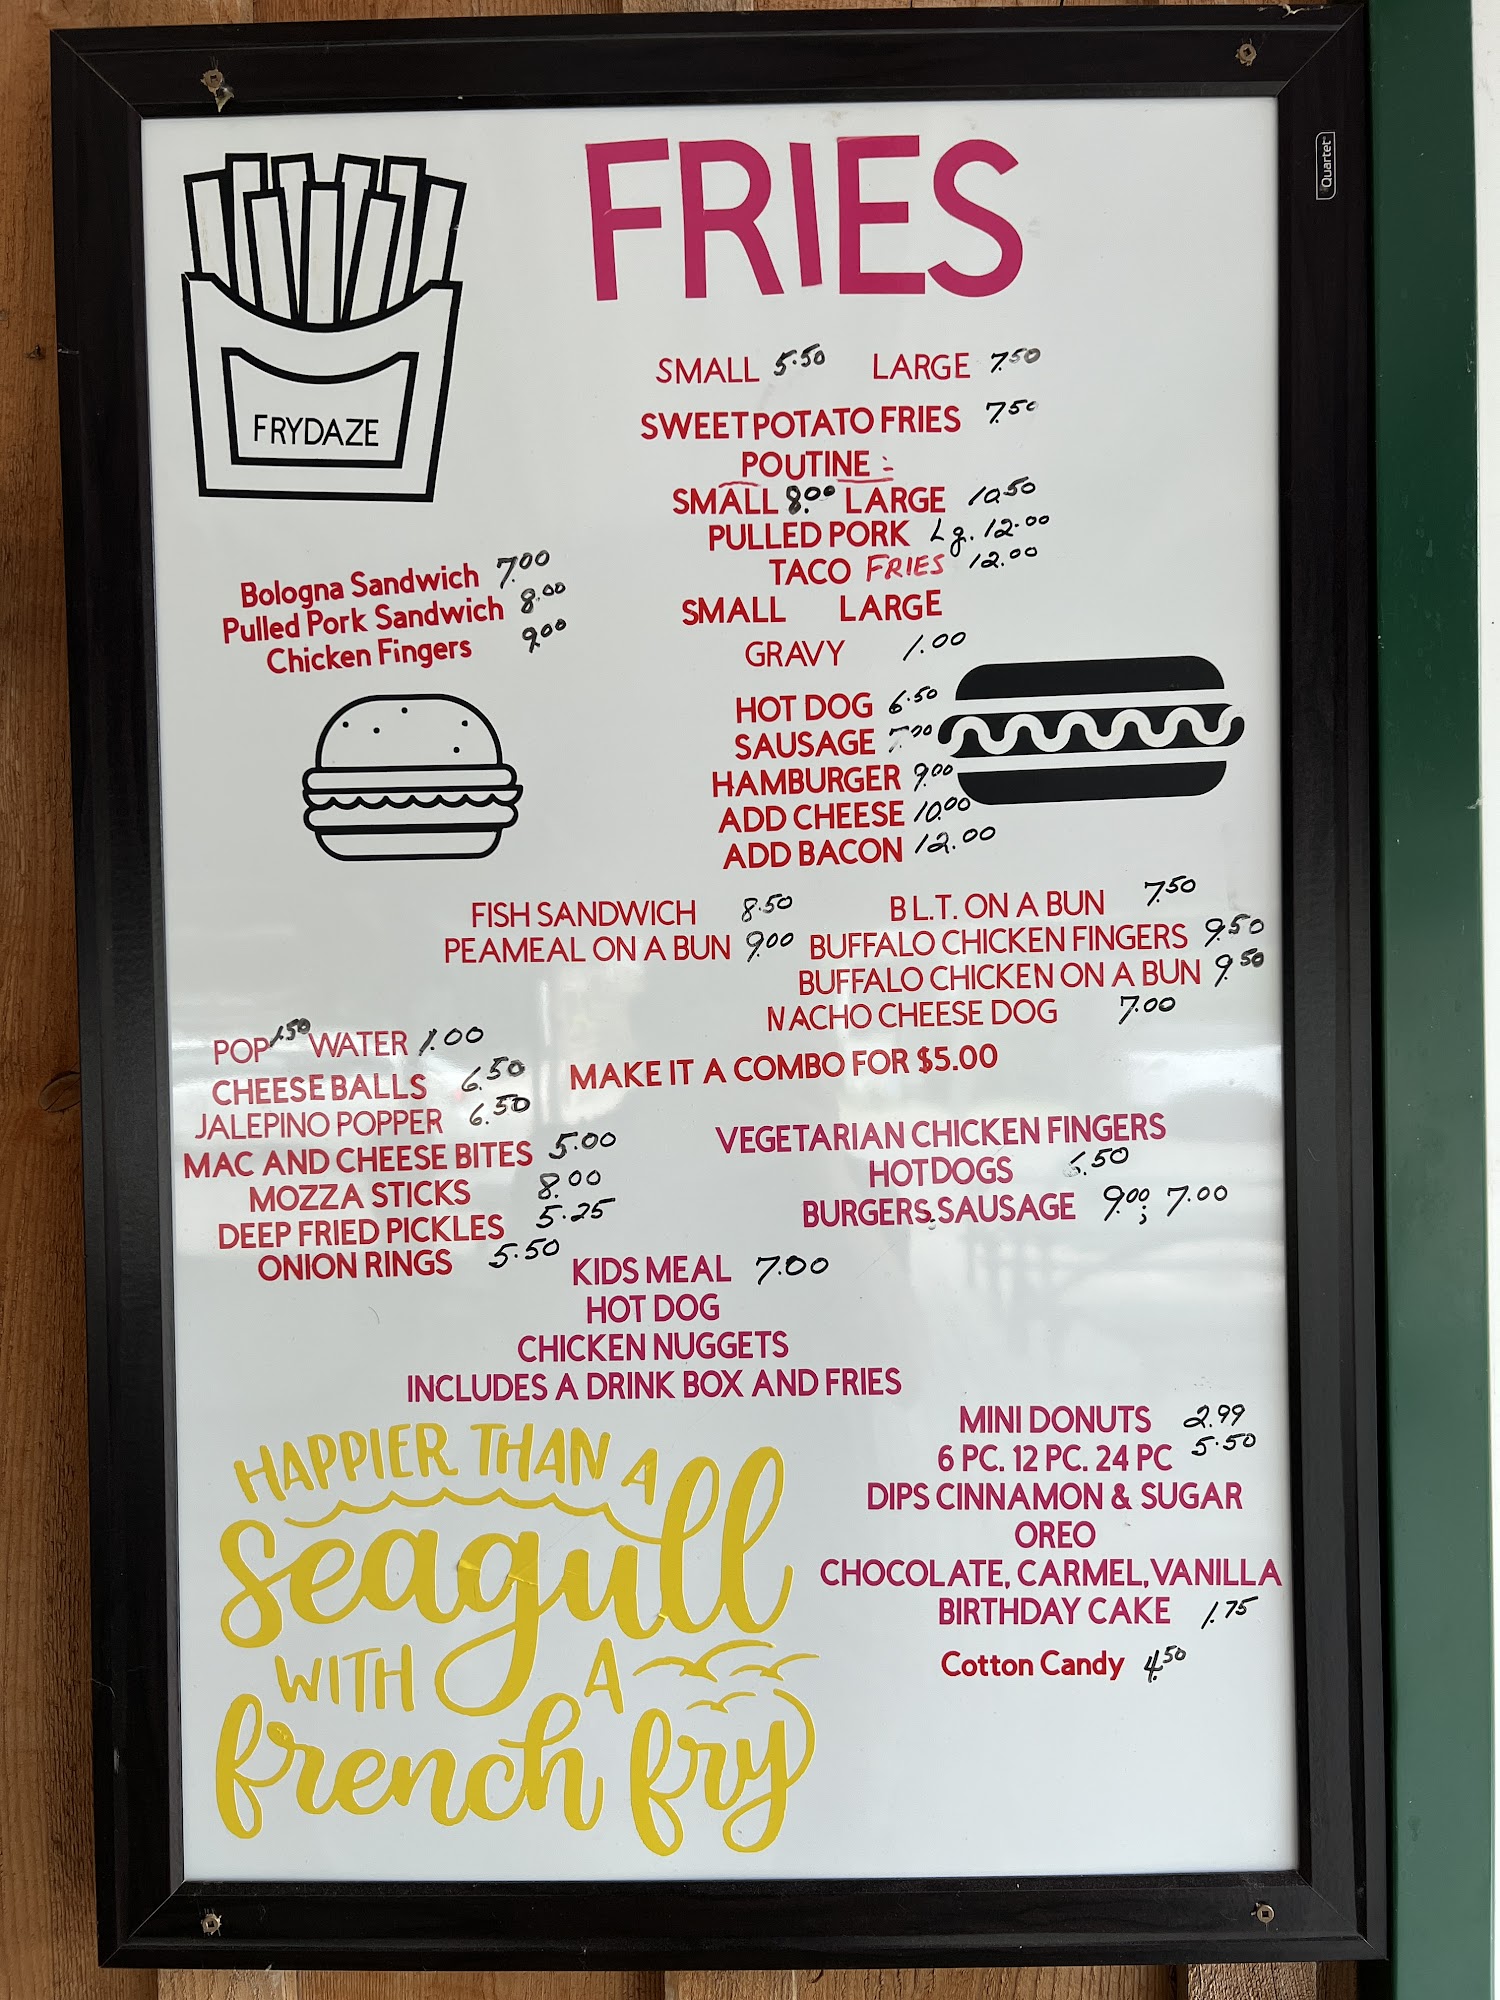 Quartet
FRIES
FRYDAZE
SMALL 5.50 LARGE 7.50
SWEET POTATO FRIES 7.50
POUTINE :
SMALL 8.00 LARGE 10.50
PULLED PORK Lg. 12.00
TACO FRIES 12.00
SMALL LARGE
GRAVY 1.00
Bologna Sandwich 7.00
Pulled Pork Sandwich 8.00
Chicken Fingers 9.00
HOT DOG 6.50
SAUSAGE 7.00
HAMBURGER 9.00
ADD CHEESE 10.00
ADD BACON 12.00
FISH SANDWICH 8.50 B L.T. ON A BUN 7.50
PEAMEAL ON A BUN 9.00 BUFFALO CHICKEN FINGERS 9.50
BUFFALO CHICKEN ON A BUN 9.50
NACHO CHEESE DOG 7.00
POP 1.50 WATER 1.00
MAKE IT A COMBO FOR $5.00
CHEESE BALLS 6.50
JALEPINO POPPER 6.50
MAC AND CHEESE BITES 5.00
MOZZA STICKS 8.00
DEEP FRIED PICKLES 5.25
ONION RINGS 5.50
VEGETARIAN CHICKEN FINGERS
HOTDOGS 6.50
BURGERS; SAUSAGE 9.00; 7.00
KIDS MEAL 7.00
HOT DOG
CHICKEN NUGGETS
INCLUDES A DRINK BOX AND FRIES
MINI DONUTS 2.99
6 PC. 12 PC. 24 PC 5.50
DIPS CINNAMON & SUGAR
OREO
CHOCOLATE, CARMEL, VANILLA
BIRTHDAY CAKE 1.75
Cotton Candy 4.50
HAPPIER THAN A
seagull
WITH A
french fry